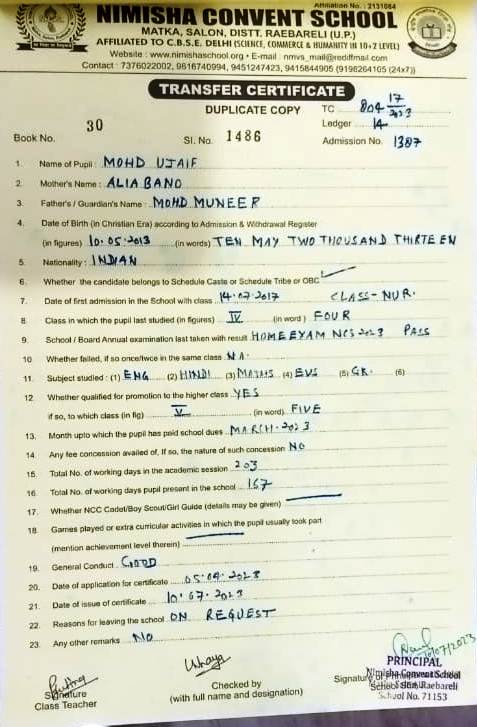 Affiliation No. : 2131084
NIMISHA CONVENT SCHOOL
MATKA, SALON, DISTT. RAEBARELI (U.P.)
AFFILIATED TO C.B.S.E. DELHI (SCIENCE, COMMERCE & HUMANITY IN 10+2 LEVEL)
Website : www.nimishaschool.org • E-mail : nmvs_mail@rediffmail.com
Contact : 7376022002, 9816740994, 9451247423, 9415844905 (9198264105 (24x7))
TRANSFER CERTIFICATE
DUPLICATE COPY TC 804 17/2023
Ledger 14
Book No. 30 Sl. No. 1486 Admission No. 1387
1. Name of Pupil : MOHD UJAIF
2. Mother's Name : ALIA BANO
3. Father's / Guardian's Name : MOHD MUNEER
4. Date of Birth (in Christian Era) according to Admission & Withdrawal Register
(in figures) 10.05.2013 (in words) TEN MAY TWO THOUSAND THIRTEEN
5. Nationality : INDIAN
6. Whether the candidate belongs to Schedule Caste or Schedule Tribe or OBC
7. Date of first admission in the School with class 14.07.2017 CLASS-NUR.
8. Class in which the pupil last studied (in figures) IV (in word) FOUR
9. School / Board Annual examination last taken with result HOME EXAM NCS 2023 PASS
10. Whether failed, if so once/twice in the same class N A.
11. Subject studied : (1) ENG (2) HINDI (3) MATHS (4) EVS (5) GK. (6)
12. Whether qualified for promotion to the higher class YES
if so, to which class (in fig) V (in word) FIVE
13. Month upto which the pupil has paid school dues MARCH-2023
14. Any fee concession availed of, If so, the nature of such concession NO
15. Total No. of working days in the academic session 203
16. Total No. of working days pupil present in the school 167
17. Whether NCC Cadet/Boy Scout/Girl Guide (details may be given)
18. Games played or extra curricular activities in which the pupil usually took part
(mention achievement level therein)
19. General Conduct GOOD
20. Date of application for certificate 05.04.2023
21. Date of issue of certificate 10.07.2023
22. Reasons for leaving the school ON REQUEST
23. Any other remarks NO
10/07/2023
PRINCIPAL
Nimisha Convent School
Salon, Raebareli
School No. 71153
Signature
Class Teacher
Checked by
(with full name and designation)
Signature of Principal
School Seal